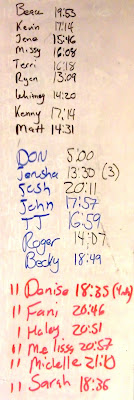 Beau 19:53
Kevin 17:14
Jena 15:46
Missy 16:08
Terri 16:18
Ryan 13:09
Whitney 14:20
Kenny 17:14
Matt 14:31
DON 5:00
Jerusha 13:30 (3)
Josh 20:11
John 17:57
TJ 16:59
Roger 14:07
Becky 18:49
11 Danise 18:35
11 Fani 20:46
11 Haley 20:51
11 Melissa 20:57
11 Michelle 21:10
11 Sarah 18:36